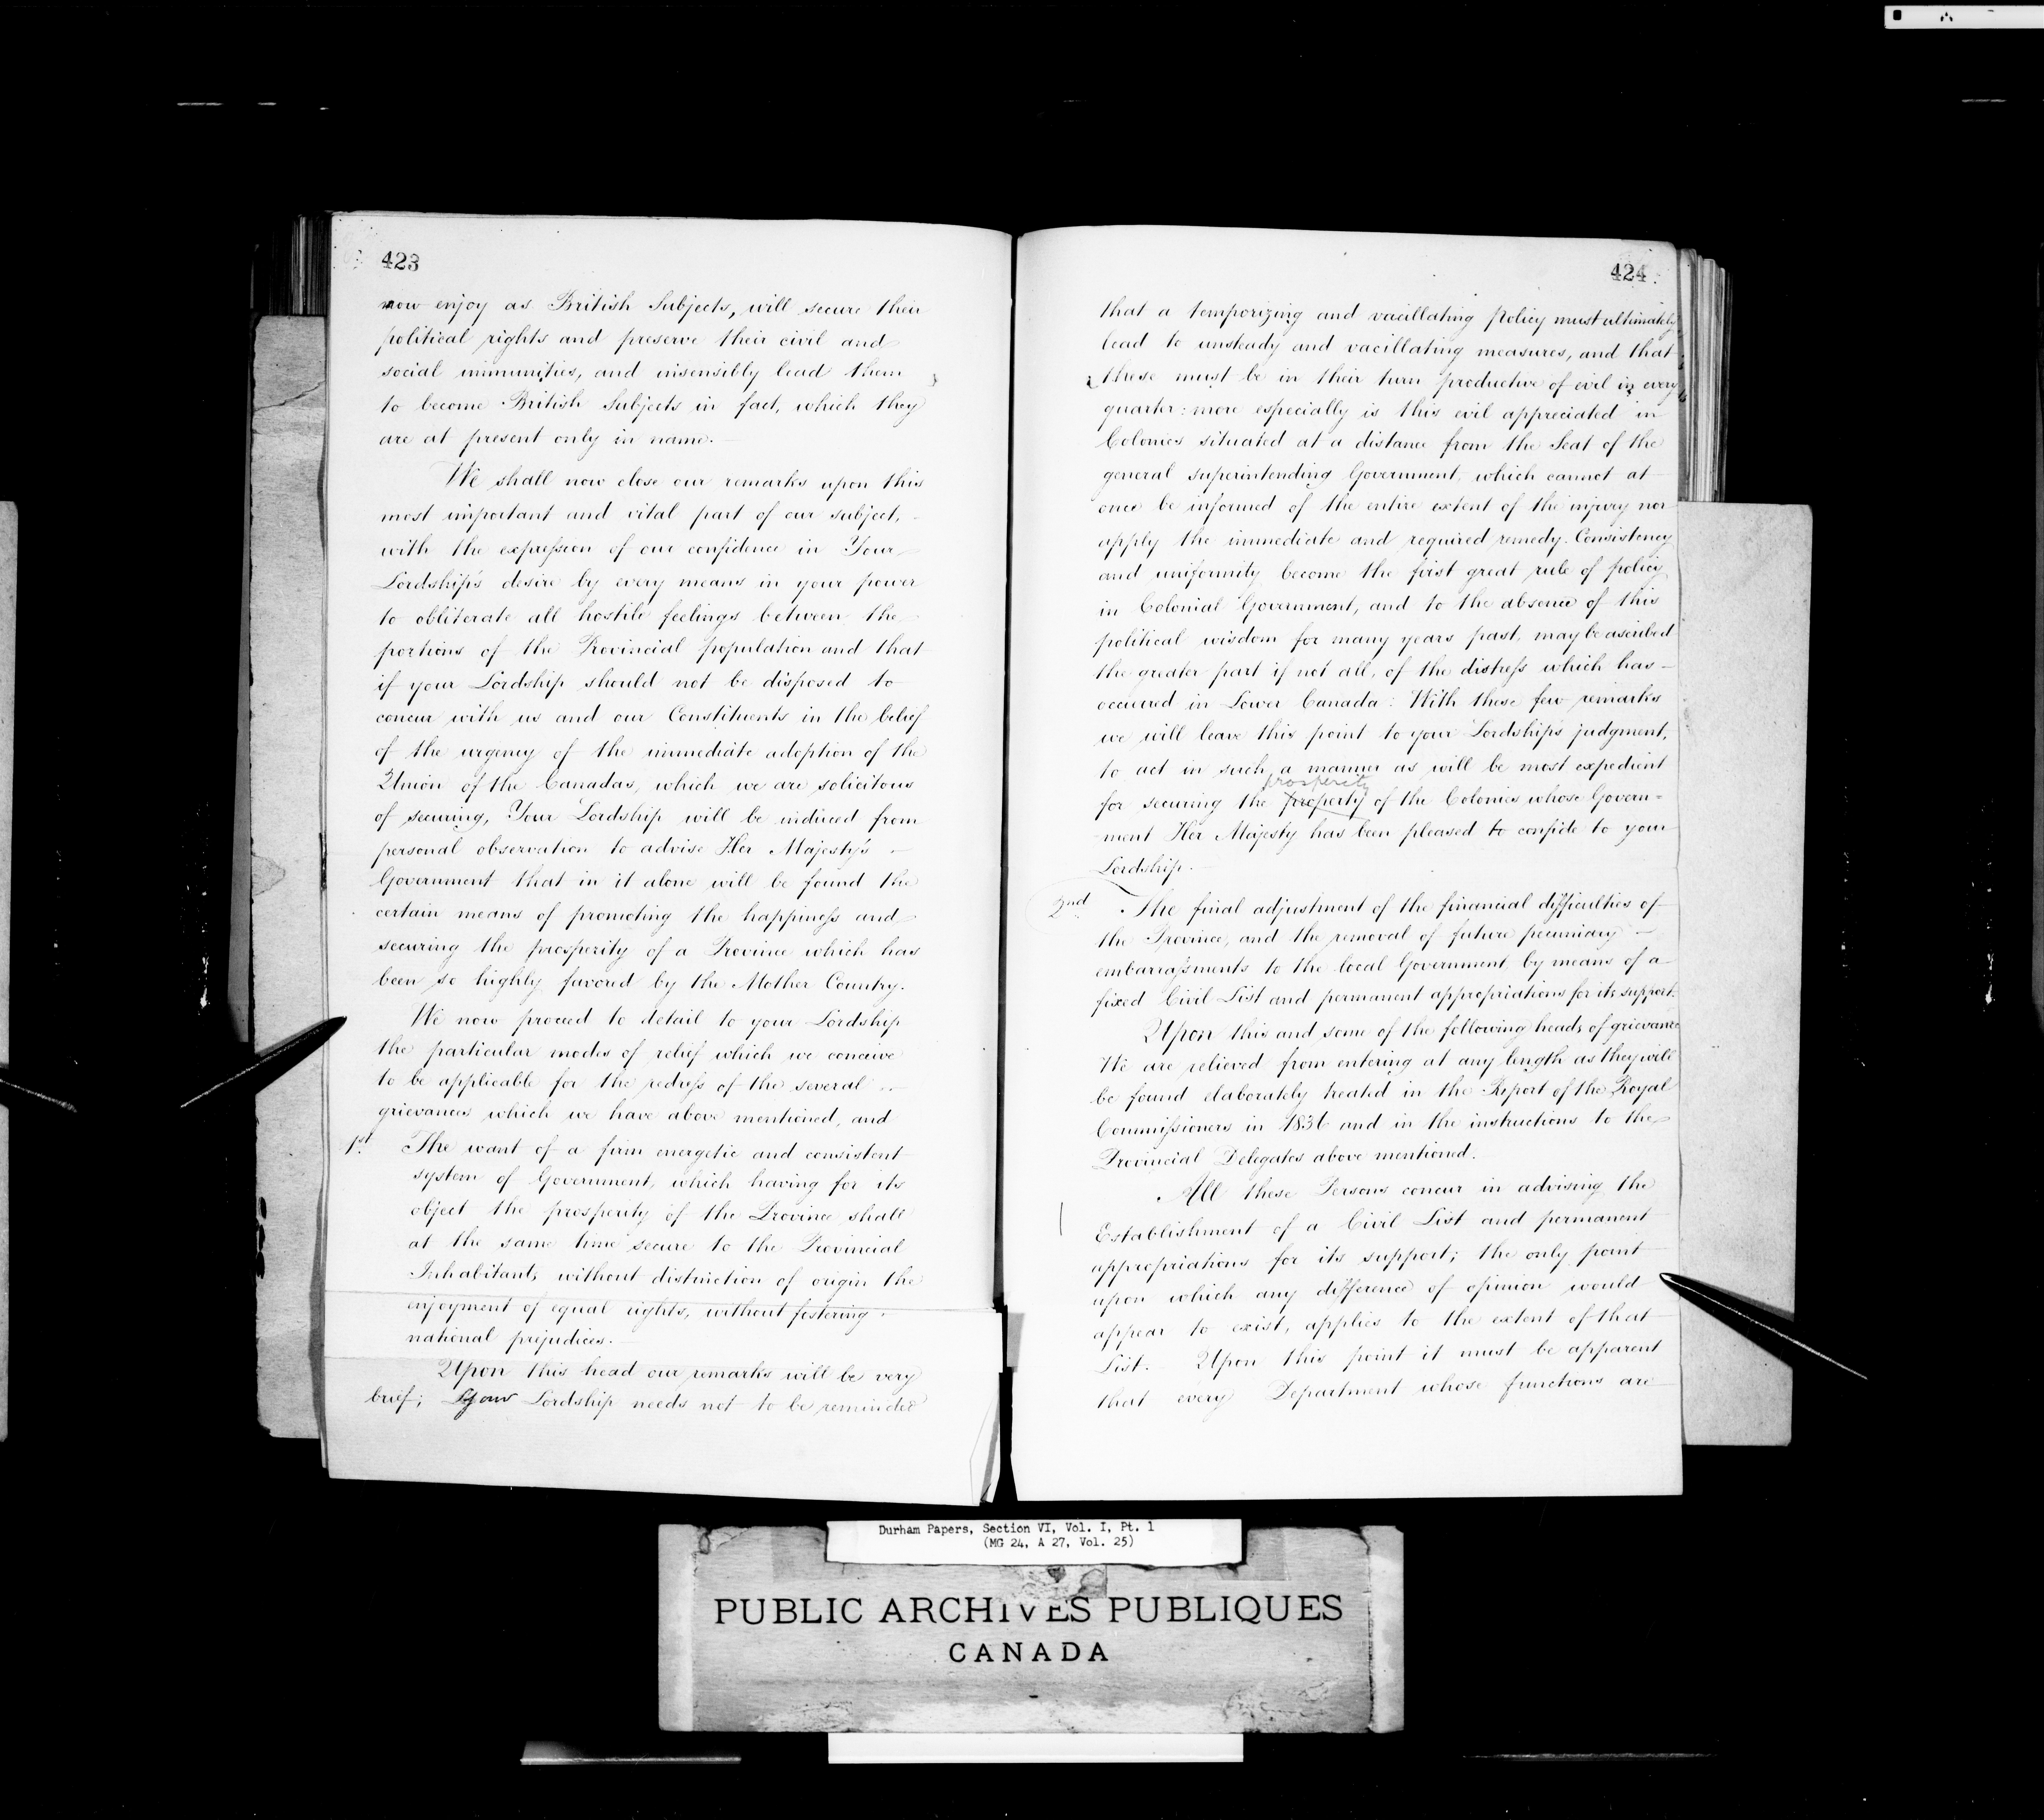 423
now enjoy as British Subjects, will secure their
political rights and preserve their civil and
social immunities, and insensibly lead them
to become British Subjects in fact, which they
are at present only in name.—
We shall now close our remarks upon this
most important and vital part of our subject,
with the expression of our confidence in Your
Lordship's desire by every means in your power
to obliterate all hostile feelings between the
portions of the Provincial population and that
if your Lordship should not be disposed to
concur with us and our Constituents in the belief
of the urgency of the immediate adoption of the
Union of the Canadas, which we are solicitous
of securing, Your Lordship will be induced from
personal observation to advise Her Majesty's —
Government that in it alone will be found the
certain means of promoting the happiness and
securing the prosperity of a Province which has
been so highly favored by the Mother Country.
We now proceed to detail to your Lordship
the particular modes of relief which we conceive
to be applicable for the redress of the several
grievances which we have above mentioned, and
1st. The want of a firm energetic and consistent
system of Government, which having for its
object the prosperity of the Province shall
at the same time secure to the Provincial
Inhabitants without distinction of origin the
enjoyment of equal rights, without fostering
national prejudices.—
Upon this head our remarks will be very
brief; Your Lordship needs not to be reminded
424
that a temporizing and vacillating policy must ultimately
lead to unsteady and vacillating measures, and that
these must be in their turn productive of evil in every
quarter: more especially is this evil appreciated in
Colonies situated at a distance from the Seat of the
general superintending Government, which cannot at
once be informed of the entire extent of the injury nor
apply the immediate and required remedy. Consistency
and uniformity become the first great rule of policy
in Colonial Government, and to the absence of this
political wisdom for many years past, may be ascribed
the greater part if not all, of the distress which has —
occurred in Lower Canada: With these few remarks
we will leave this point to your Lordship's judgment,
to act in such a manner as will be most expedient
prosperity
for securing the property of the Colonies whose Govern=
-ment Her Majesty has been pleased to confide to your
Lordship.—
2nd The final adjustment of the financial difficulties of
the Province, and the removal of future pecuniary —
embarrassments to the local Government by means of a
fixed Civil List and permanent appropriations for its support.
Upon this and some of the following heads of grievance
We are relieved from entering at any length as they will
be found elaborately treated in the Report of the Royal
Commissioners in 1836 and in the instructions to the
Provincial Delegates above mentioned.—
All these Persons concur in advising the
Establishment of a Civil List and permanent
appropriations for its support; the only point
upon which any difference of opinion would
appear to exist, applies to the extent of that
List. Upon this point it must be apparent
that every Department whose functions are
Durham Papers, Section VI, Vol. I, Pt. 1
(MG 24, A 27, Vol. 25)
PUBLIC ARCHIVES PUBLIQUES
CANADA